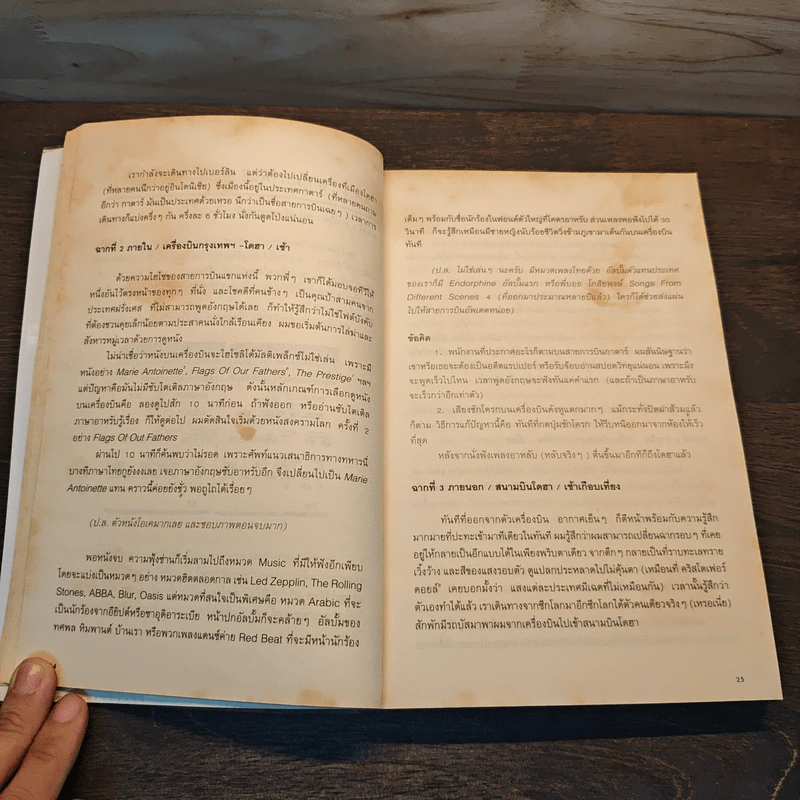 เรากำลังจะเดินทางไปเบอร์ลิน แต่ว่าต้องไปเปลี่ยนเครื่องที่เมืองโดฮา
(ที่หลายคนนึกว่าอยู่อินโดนีเซีย) ซึ่งเมืองนี้อยู่ในประเทศกาตาร์ (ที่หลายคนถาม
อีกว่า กาตาร์ มันเป็นประเทศด้วยเหรอ นึกว่าเป็นชื่อสายการบินเฉยๆ) เวลาการ
เดินทางก็แบ่งครึ่งๆ กัน ครึ่งละ 6 ชั่วโมง นั่งกันตูดโป่งแน่นอน
ฉากที่ 2 ภายใน / เครื่องบินกรุงเทพฯ –โดฮา / เช้า
ด้วยความไฮโซของสายการบินแขกแห่งนี้ พวกพี่ๆ เขาก็ได้มอบจอทีวีให้
หนึ่งอันไว้ตรงหน้าของทุกๆ ที่นั่ง และโชคดีที่คนข้างๆ เป็นคุณป้าสามคนจาก
ประเทศฝรั่งเศส ที่ไม่สามารถพูดอังกฤษได้เลย ก็ทำให้รู้สึกว่าไม่ใช่ไฟต์บังคับ
ที่ต้องชวนคุยเล็กน้อยตามประสาคนนั่งใกล้เรือนเคียง ผมขอเริ่มต้นการไล่ฆ่าและ
สังหารหมู่เวลาด้วยการดูหนัง
ไม่น่าเชื่อว่าหนังบนเครื่องบินจะไฮโซลิโด้มัลติเพล็กซ์ไม่ใช่เล่น เพราะมี
หนังอย่าง Marie Antoinette, Flags Of Our Fathers, The Prestige ฯลฯ
แต่ปัญหาคือมันไม่มีซับไตเติลภาษาอังกฤษ ดังนั้นหลักเกณฑ์การเลือกดูหนัง
บนเครื่องบินคือ ลองดูไปสัก 10 นาทีก่อน ถ้าฟังออก หรืออ่านซับไตเติล
ภาษาอาหรับรู้เรื่อง ก็ให้ดูต่อไป ผมตัดสินใจเริ่มด้วยหนังสงครามโลก ครั้งที่ 2
อย่าง Flags Of Out Fathers
ผ่านไป 10 นาทีก็ค้นพบว่าไม่รอด เพราะศัพท์แนวเสนาธิการทางทหารนี่
บางทีภาษาไทยกูยังงงเลย เจอภาษาอังกฤษซับอาหรับอีก จึงเปลี่ยนไปเป็น Marie
Antoinette แทน คราวนี้ค่อยยังชั่ว พอถูไถได้เรื่อยๆ
(ป.ล. ตัวหนังโอเคมากเลย และชอบภาพตอนจบมาก)
พอหนังจบ ความฟุ้งซ่านก็เริ่มลามไปถึงหมวด Music ที่มีให้ฟังอีกเพียบ
โดยจะแบ่งเป็นหมวดๆ อย่าง หมวดฮิตตลอดกาล เช่น Led Zepplin, The Rolling
Stones, ABBA, Blur, Oasis แต่หมวดที่สนใจเป็นพิเศษคือ หมวด Arabic ที่จะ
เป็นนักร้องจากอียิปต์หรือซาอุดิอาระเบีย หน้าปกอัลบั้มก็จะคล้ายๆ อัลบั้มของ
ทศพล หิมพานต์ บ้านเรา หรือพวกเพลงแดนซ์ค่าย Red Beat ที่จะมีหน้านักร้อง
เต็มๆ พร้อมกับชื่อนักร้องในฟอนต์ตัวใหญ่ที่โคตรอาหรับ ส่วนเพลงพอฟังไปได้ 30
วินาที ก็จะรู้สึกเหมือนมีชายหญิงนับร้อยชีวิตวิ่งข้ามภูเขามาเต้นกันบนเครื่องบิน
ทันที
(ป.ล. ไม่ใช่เล่นๆ นะครับ มีหมวดเพลงไทยด้วย อัลบั้มตัวแทนประเทศ
ของเราก็มี Endorphine อัลบั้มแรก หรือพี่บอย โกสิยพงษ์ Songs From
Different Scenes 4 (ที่ออกมาประมาณหลายปีแล้ว) ใครก็ได้ช่วยส่งแผ่น
ไปให้สายการบินอัพเดตหน่อย)
ข้อคิด
1. พนักงานที่ประกาศอะไรก็ตามบนสายการบินกาตาร์ ผมสันนิษฐานว่า
เขาหรือเธอจะต้องเป็นอดีตแรปเปอร์ หรือรับจ๊อบอ่านสปอตวิทยุแน่นอน เพราะมึง
จะพูดเร็วไปไหน เวลาพูดอังกฤษจะฟังทันแค่คำแรก (และถ้าเป็นภาษาอาหรับ
จะเร็วกว่าอีกเท่าตัว)
2. เสียงชักโครกบนเครื่องบินดังหูแตกมากๆ แม้กระทั่งปิดฝาส้วมแล้ว
ก็ตาม วิธีการแก้ปัญหานี้คือ ทันทีที่กดปุ่มชักโครก ให้รีบหนีออกมาจากห้องให้เร็ว
ที่สุด
หลังจากนั่งฟังเพลงอาหลับ (หลับจริงๆ ) ตื่นขึ้นมาอีกทีก็ถึงโดฮาแล้ว
ฉากที่ 3 ภายนอก / สนามบินโดฮา / เช้าเกือบเที่ยง
ทันทีที่ออกจากตัวเครื่องบิน อากาศเย็นๆ ก็ตีหน้าพร้อมกับความรู้สึก
มากมายที่ปะทะเข้ามาทีเดียวในทันที ผมรู้สึกว่าผมสามารถเปลี่ยนฉากรอบๆ ที่เคย
อยู่ให้กลายเป็นอีกแบบได้ในเพียงพริบตาเดียว จากตึกๆ กลายเป็นที่ราบทะเลทราย
เวิ้งว้าง และสีของแสงรอบตัว ดูแปลกประหลาดไปไม่คุ้นตา (เหมือนที่ คริสโตเฟอร์
ดอยล์ เคยบอกมั้งว่า แสงแต่ละประเทศมีเฉดที่ไม่เหมือนกัน) เวลานั้นรู้สึกว่า
ตัวเองทำได้แล้ว เราเดินทางจากซีกโลกมาอีกซีกโลกได้ตัวคนเดียวจริงๆ (เหรอเนี่ย)
สักพักมีรถบัสมาพาผมจากเครื่องบินไปเข้าสนามบินโดฮา
25